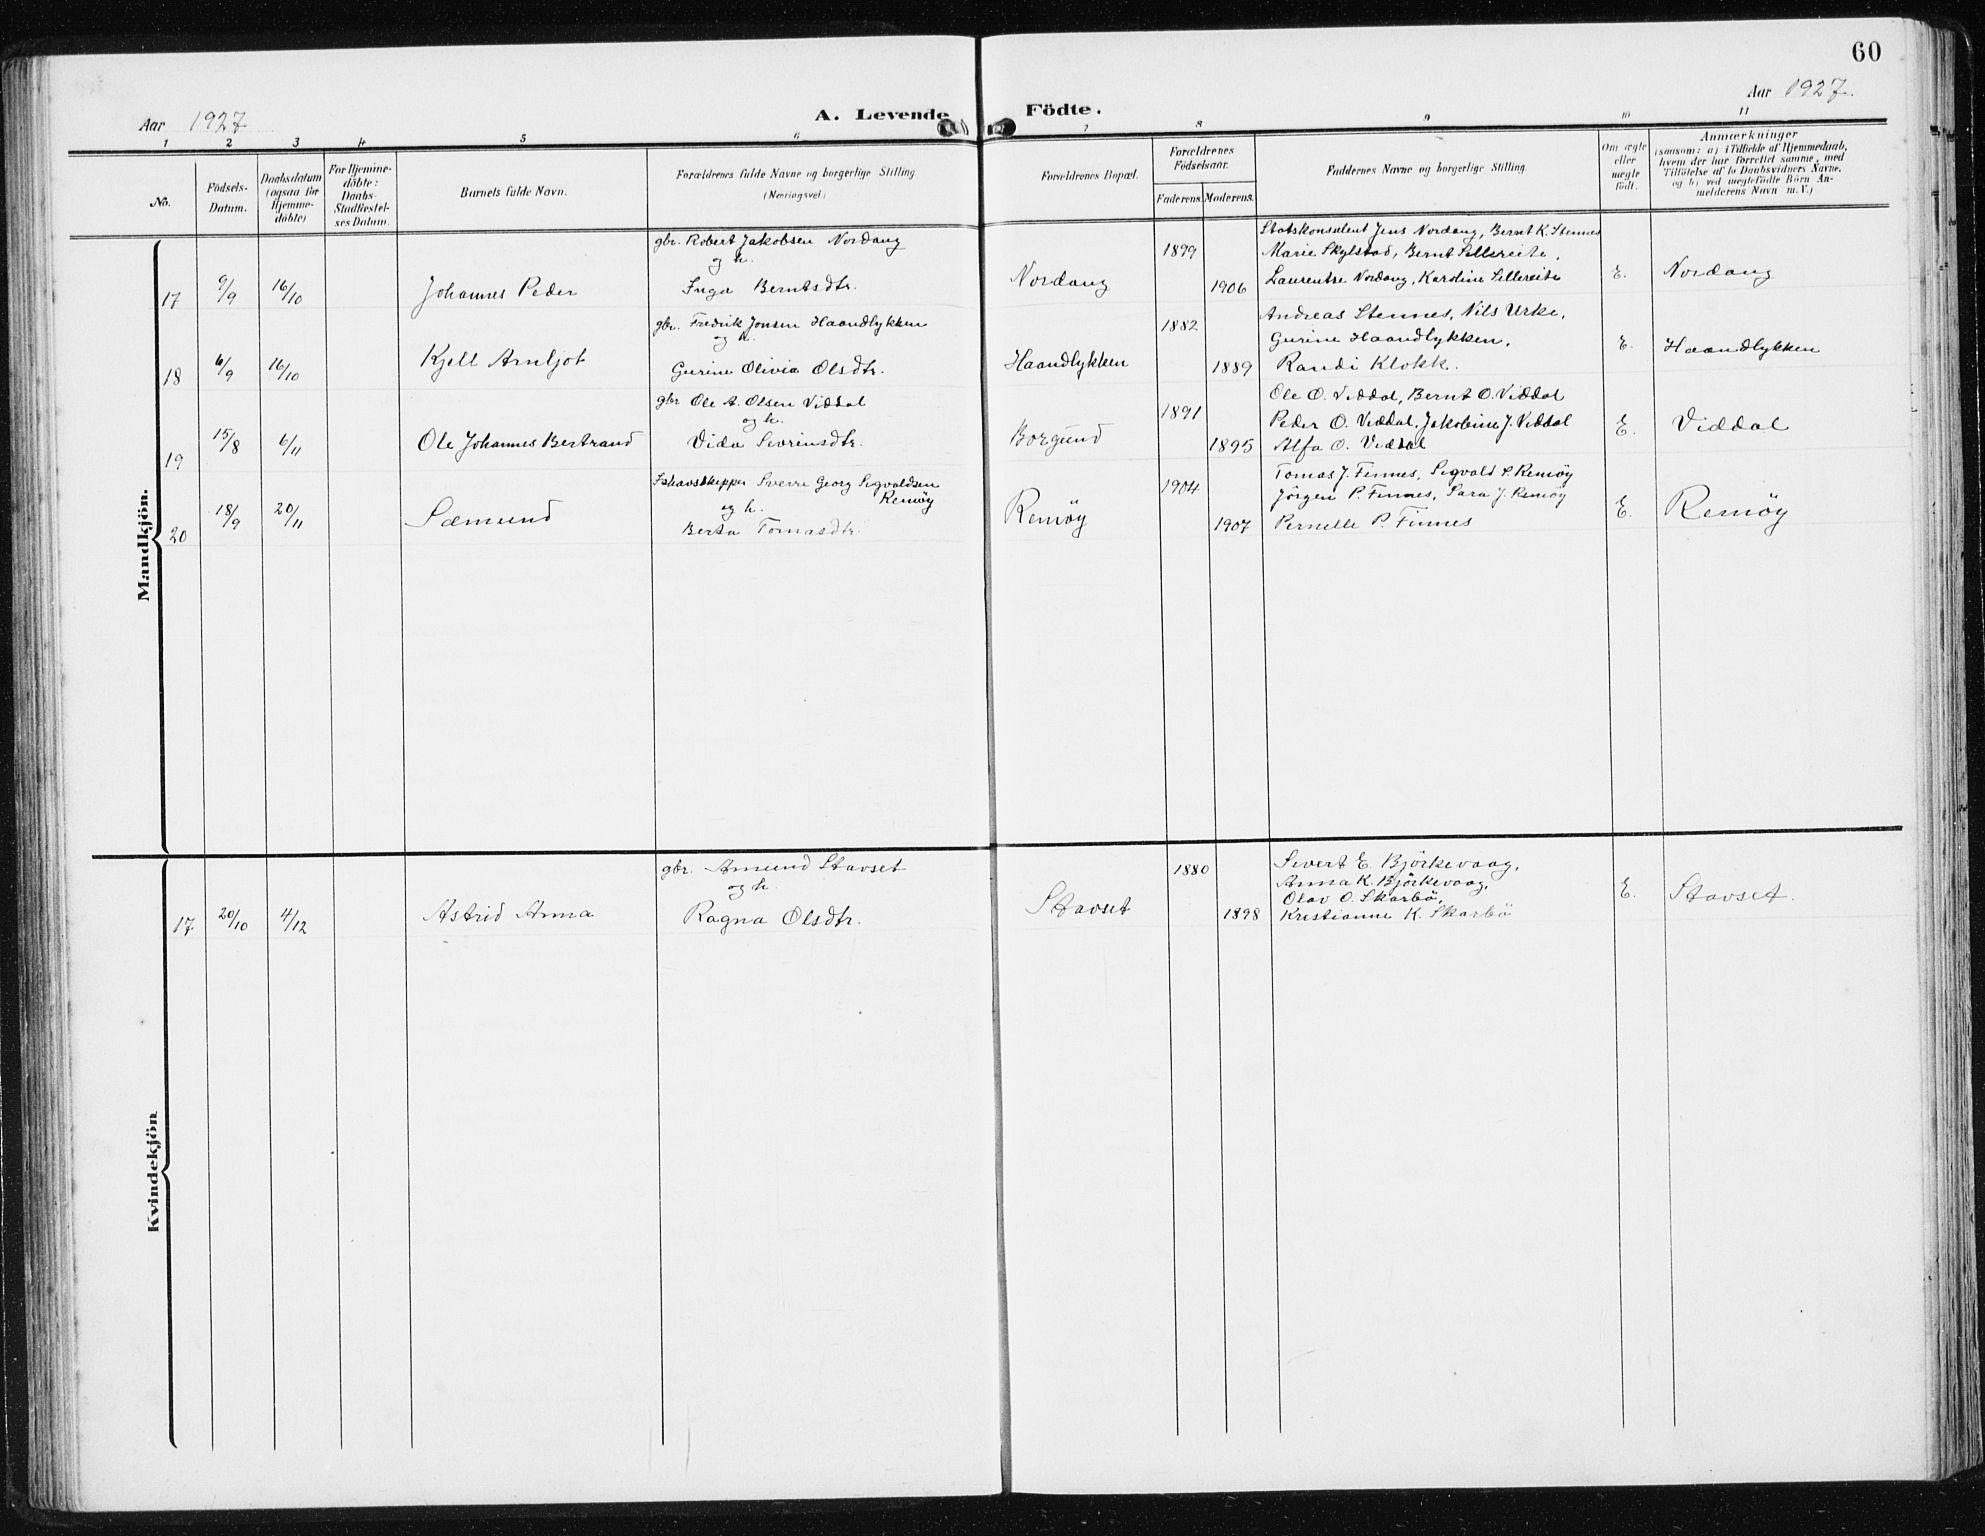 60
Aar 1927
A. Levende Födte.
Aar 1927.
1 2 3 4 5 6 7 8 9 10 11
No.
Födsels-
Datum.
Daabsdatum
(ogsaa for
Hjemme-
döbte)
For Hjemme-
döbte:
Daabs-
Stadfæstel-
ses Datum.
Barnets fulde Navn.
Forældrenes fulde Navne og borgerlige Stilling
(Næringsvei.)
Forældrenes Bopæl.
Forældrenes
Födselsaar.
Faderens. Moderens.
Faddernes Navne og borgerlige Stilling.
Om ægte
eller
uægte
födt.
Anmærkninger
(saasom: a) i Tilfælde af Hjemmedaab,
hvem der har forrettet samme, med
Tilföielse af to Daabsvidners Navne,
og b) ved uægtefödte Börn An-
melderens Navn m. V.)
Mandkjön.
17 9/9 16/10 Johannes Peder
gbr. Robert Jakobsen Nordang
og h.
Inga Berntsdtr.
Nordang
1899
1906
Statskonsulent Jens Nordang, Bernt K. Stennes
Marie Skylstad, Bernt Lillereite,
Laurentse Nordang, Karoline Lillereite
E.
Nordang
18 6/9 16/10 Kjell Arnljot
gbr. Fredrik Jonsen Haandlykken
og h.
Gurine Olivia Olsdtr.
Haandlykken
1882
1889
Andreas Stennes, Nils Urke,
Gurine Haandlykken,
Randi Klokk.
E.
Haandlykken
19 15/8 6/11 Ole Johannes Bertrand
gbr Ole A. Olsen Viddal
og h.
Vida Severinsdtr.
Borgund
1891
1895
Ole O. Viddal, Bernt O. Viddal
Peder O. Viddal, Jakobine J. Viddal
Alfa O. Viddal
E.
Viddal
20 18/9 20/11 Sæmund
Ishavsskipper Sverre Georg Sigvaldsen
Remøy
og h.
Berta Tomasdtr
Remøy
1904
1907
Tomas J. Finnes, Sigvald P. Remøy
Jörgen P. Finnes, Sara J. Remøy
Pernelle P. Finnes
E.
Remøy
Kvindekjön
17 20/10 4/12 Astrid Anna
gbr. Amund Stavset
og h.
Ragna Olsdtr.
Stavset
1880
1898
Sivert E. Björkevaag,
Anna K. Björkevaag,
Olav O. Skarbö,
Kristianne K. Skarbö
E.
Stavset.